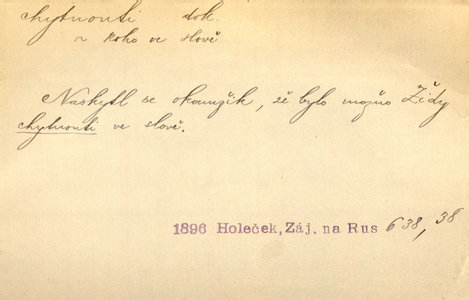 chytnouti dok.
~ koho ve slově
Naskytl se okamžik, že bylo možno Židy
chytnouti ve slově.
1896 Holeček, Záj. na Rus 638, 38